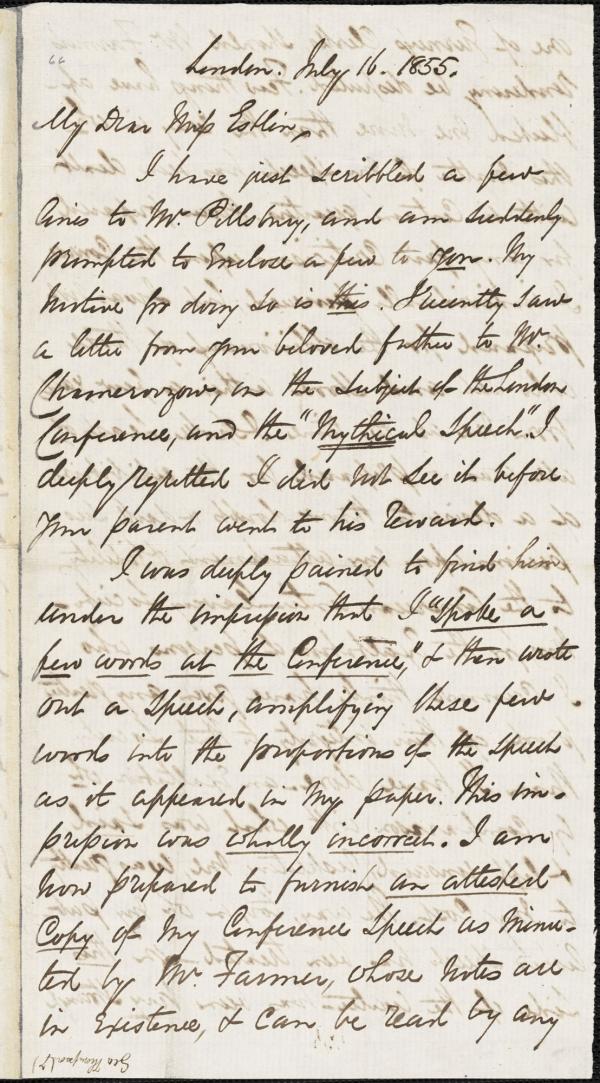 London. July 16. 1855.
My Dear Miss Estlin,
I have just scribbled a few
lines to Mr. Pillsbury, and am suddenly
prompted to enclose a few to you. My
motive for doing so is this. I recently saw
a letter from your beloved father to Mr.
Chamerovzow, on the subject of the London
Conference, and the "Mythical Speech". I
deeply regretted I did not see it before
your parent went to his reward.
I was deeply pained to find him
under the impression that I "spoke a
few words at the Conference," & then wrote
out a speech, amplifying these few
words into the proportions of the speech
as it appeared in my paper. This im-
pression was wholly incorrect. I am
now prepared to furnish an attested
Copy of my Conference Speech as minu-
ted by Mr. Farmer, whose notes are
in existence, & can be read by any
Geo Thompson (?)